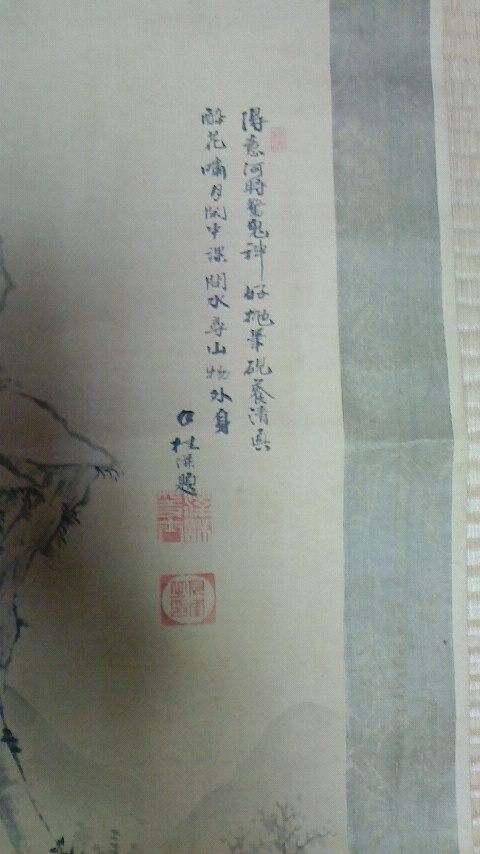 得意何時驚鬼神好拋筆硯養清真
酔花嘯月閑中課問水尋山物外身
桂併題